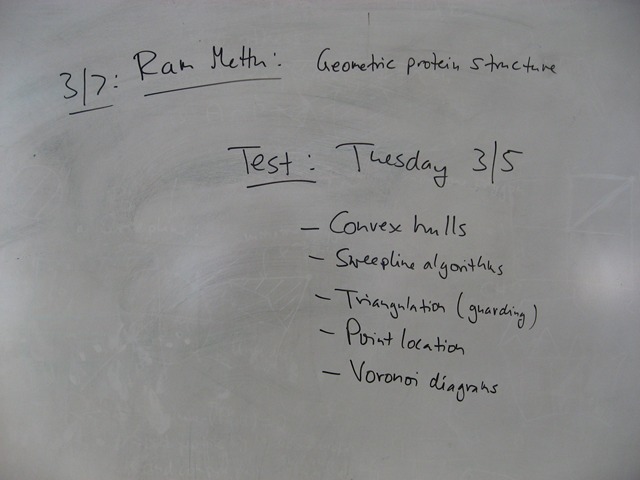 3/7: Ram Mettu: Geometric protein structure
Test: Tuesday 3/5
- Convex hulls
- Sweepline algorithms
- Triangulation (guarding)
- Point location
- Voronoi diagrams